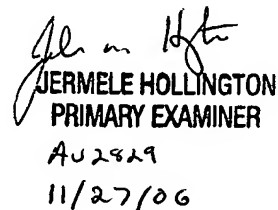 JERMELE HOLLINGTON
PRIMARY EXAMINER
AU2829
11/27/06